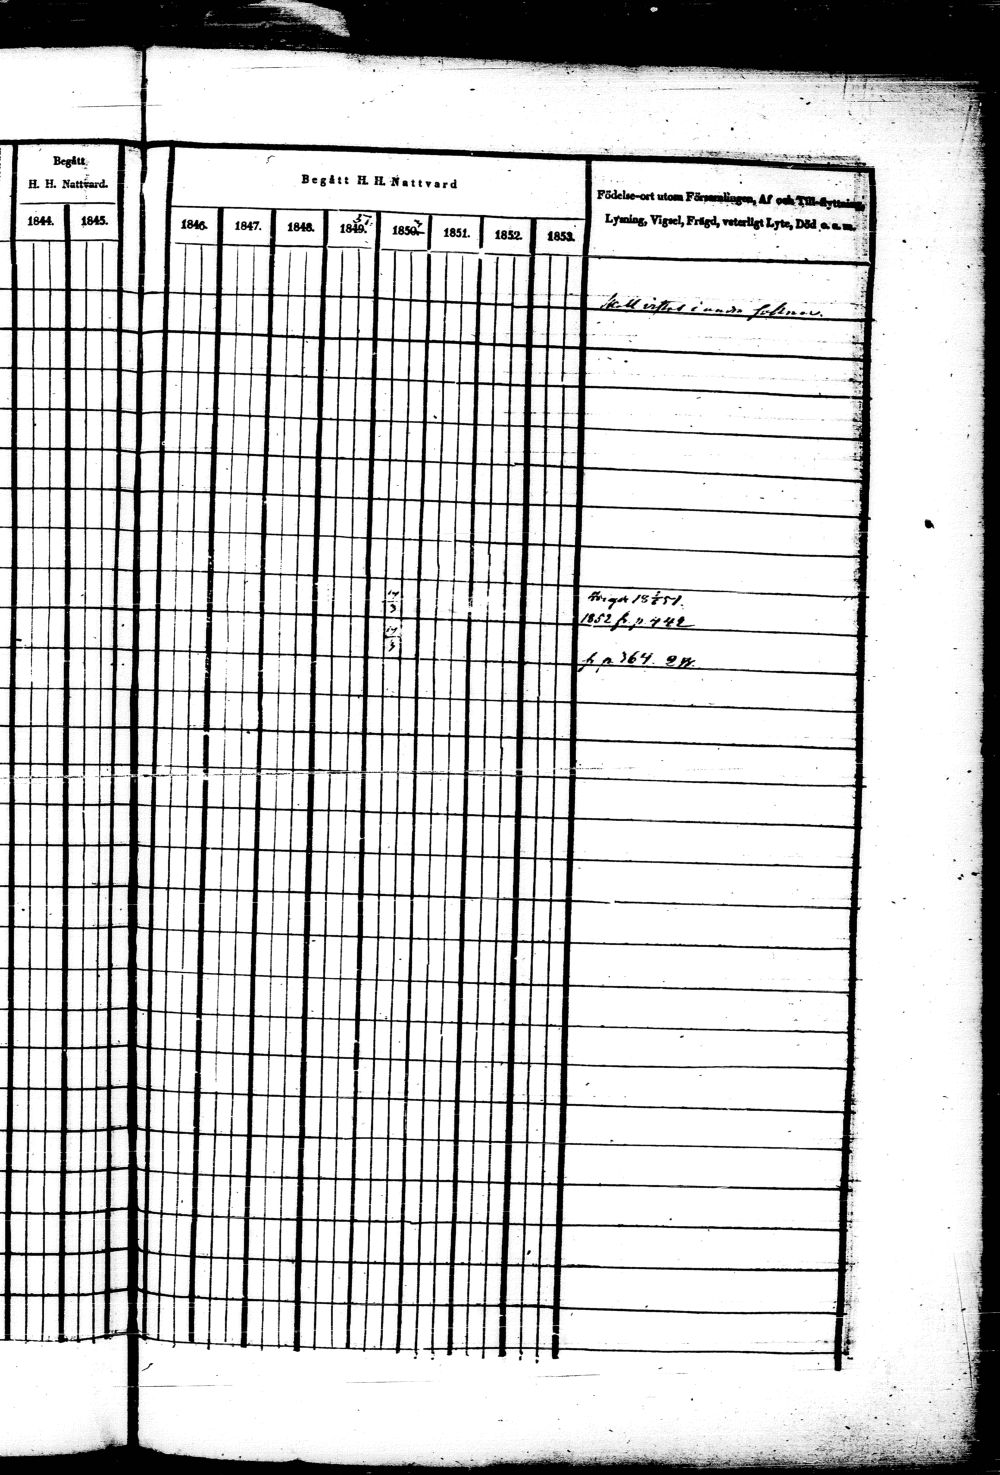 Begått
H. H. Nattvard.
1844. 1845.
Begått H. H. Nattvard
1846. 1847. 1848. 1849. 1850. 1851. 1852. 1853.
Födelse-ort utom Församlingen, Af och Till-flyttning,
Lysning, Vigsel, Frägd, vaterligt Lyte, Död o. s. m.
i andra
17/3 18 51.
1852 fr. p. 442
17/3
fr. p. 364.